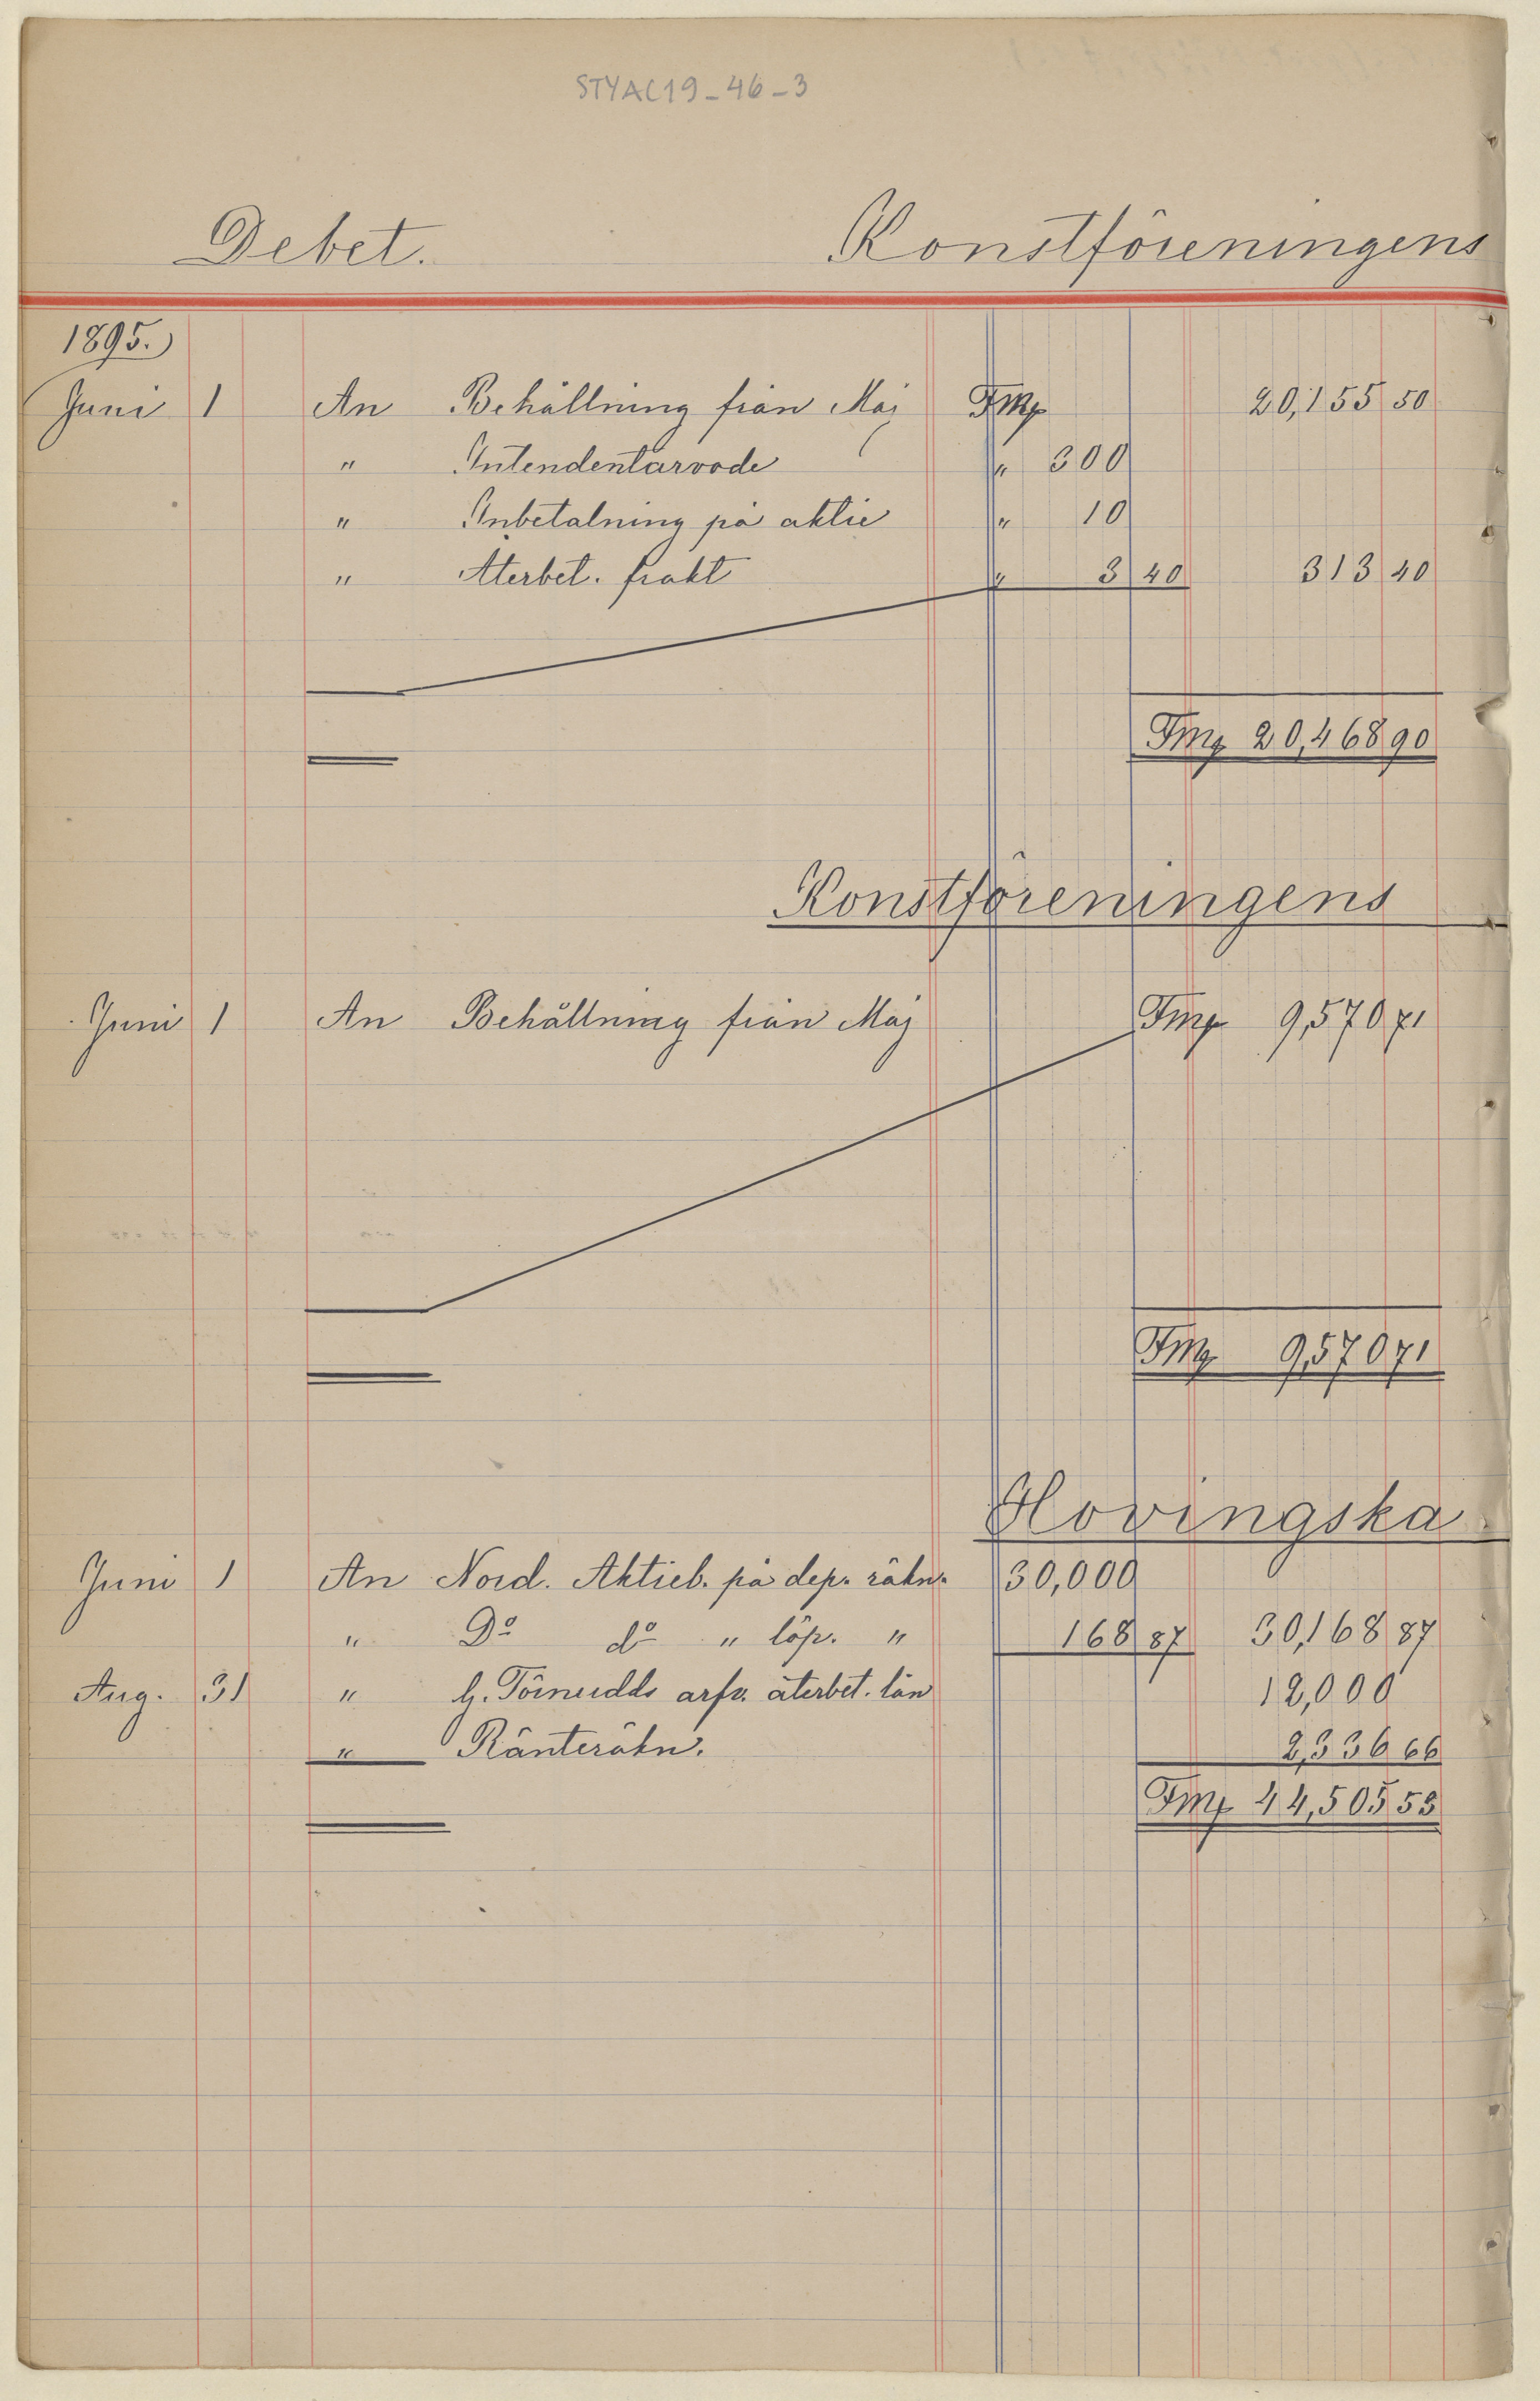 STYAC19-46-3
Debet. Konstföreningens
1895.
Juni 1 An Behållning från Maj Fmk 20,155 50
" Intendentarvode " 300
" Inbetalning på aktie " 10
" Återbet. frakt " 3 40 313 40
Fmk 20,468 90
Konstföreningens
Juni 1 An Behållning från Maj Fmk 9,570 71
Fmk 9,570 71
Hovingska
Juni 1 An Nord. Aktieb. på dep. räkn. 30,000
" Do do " löp. " 168 87 30,168 87
Aug. 31 " Törnudds arfv. återbet. lån 12,000
" Ränteräkn. 2,336 66
Fmk 44,505 53